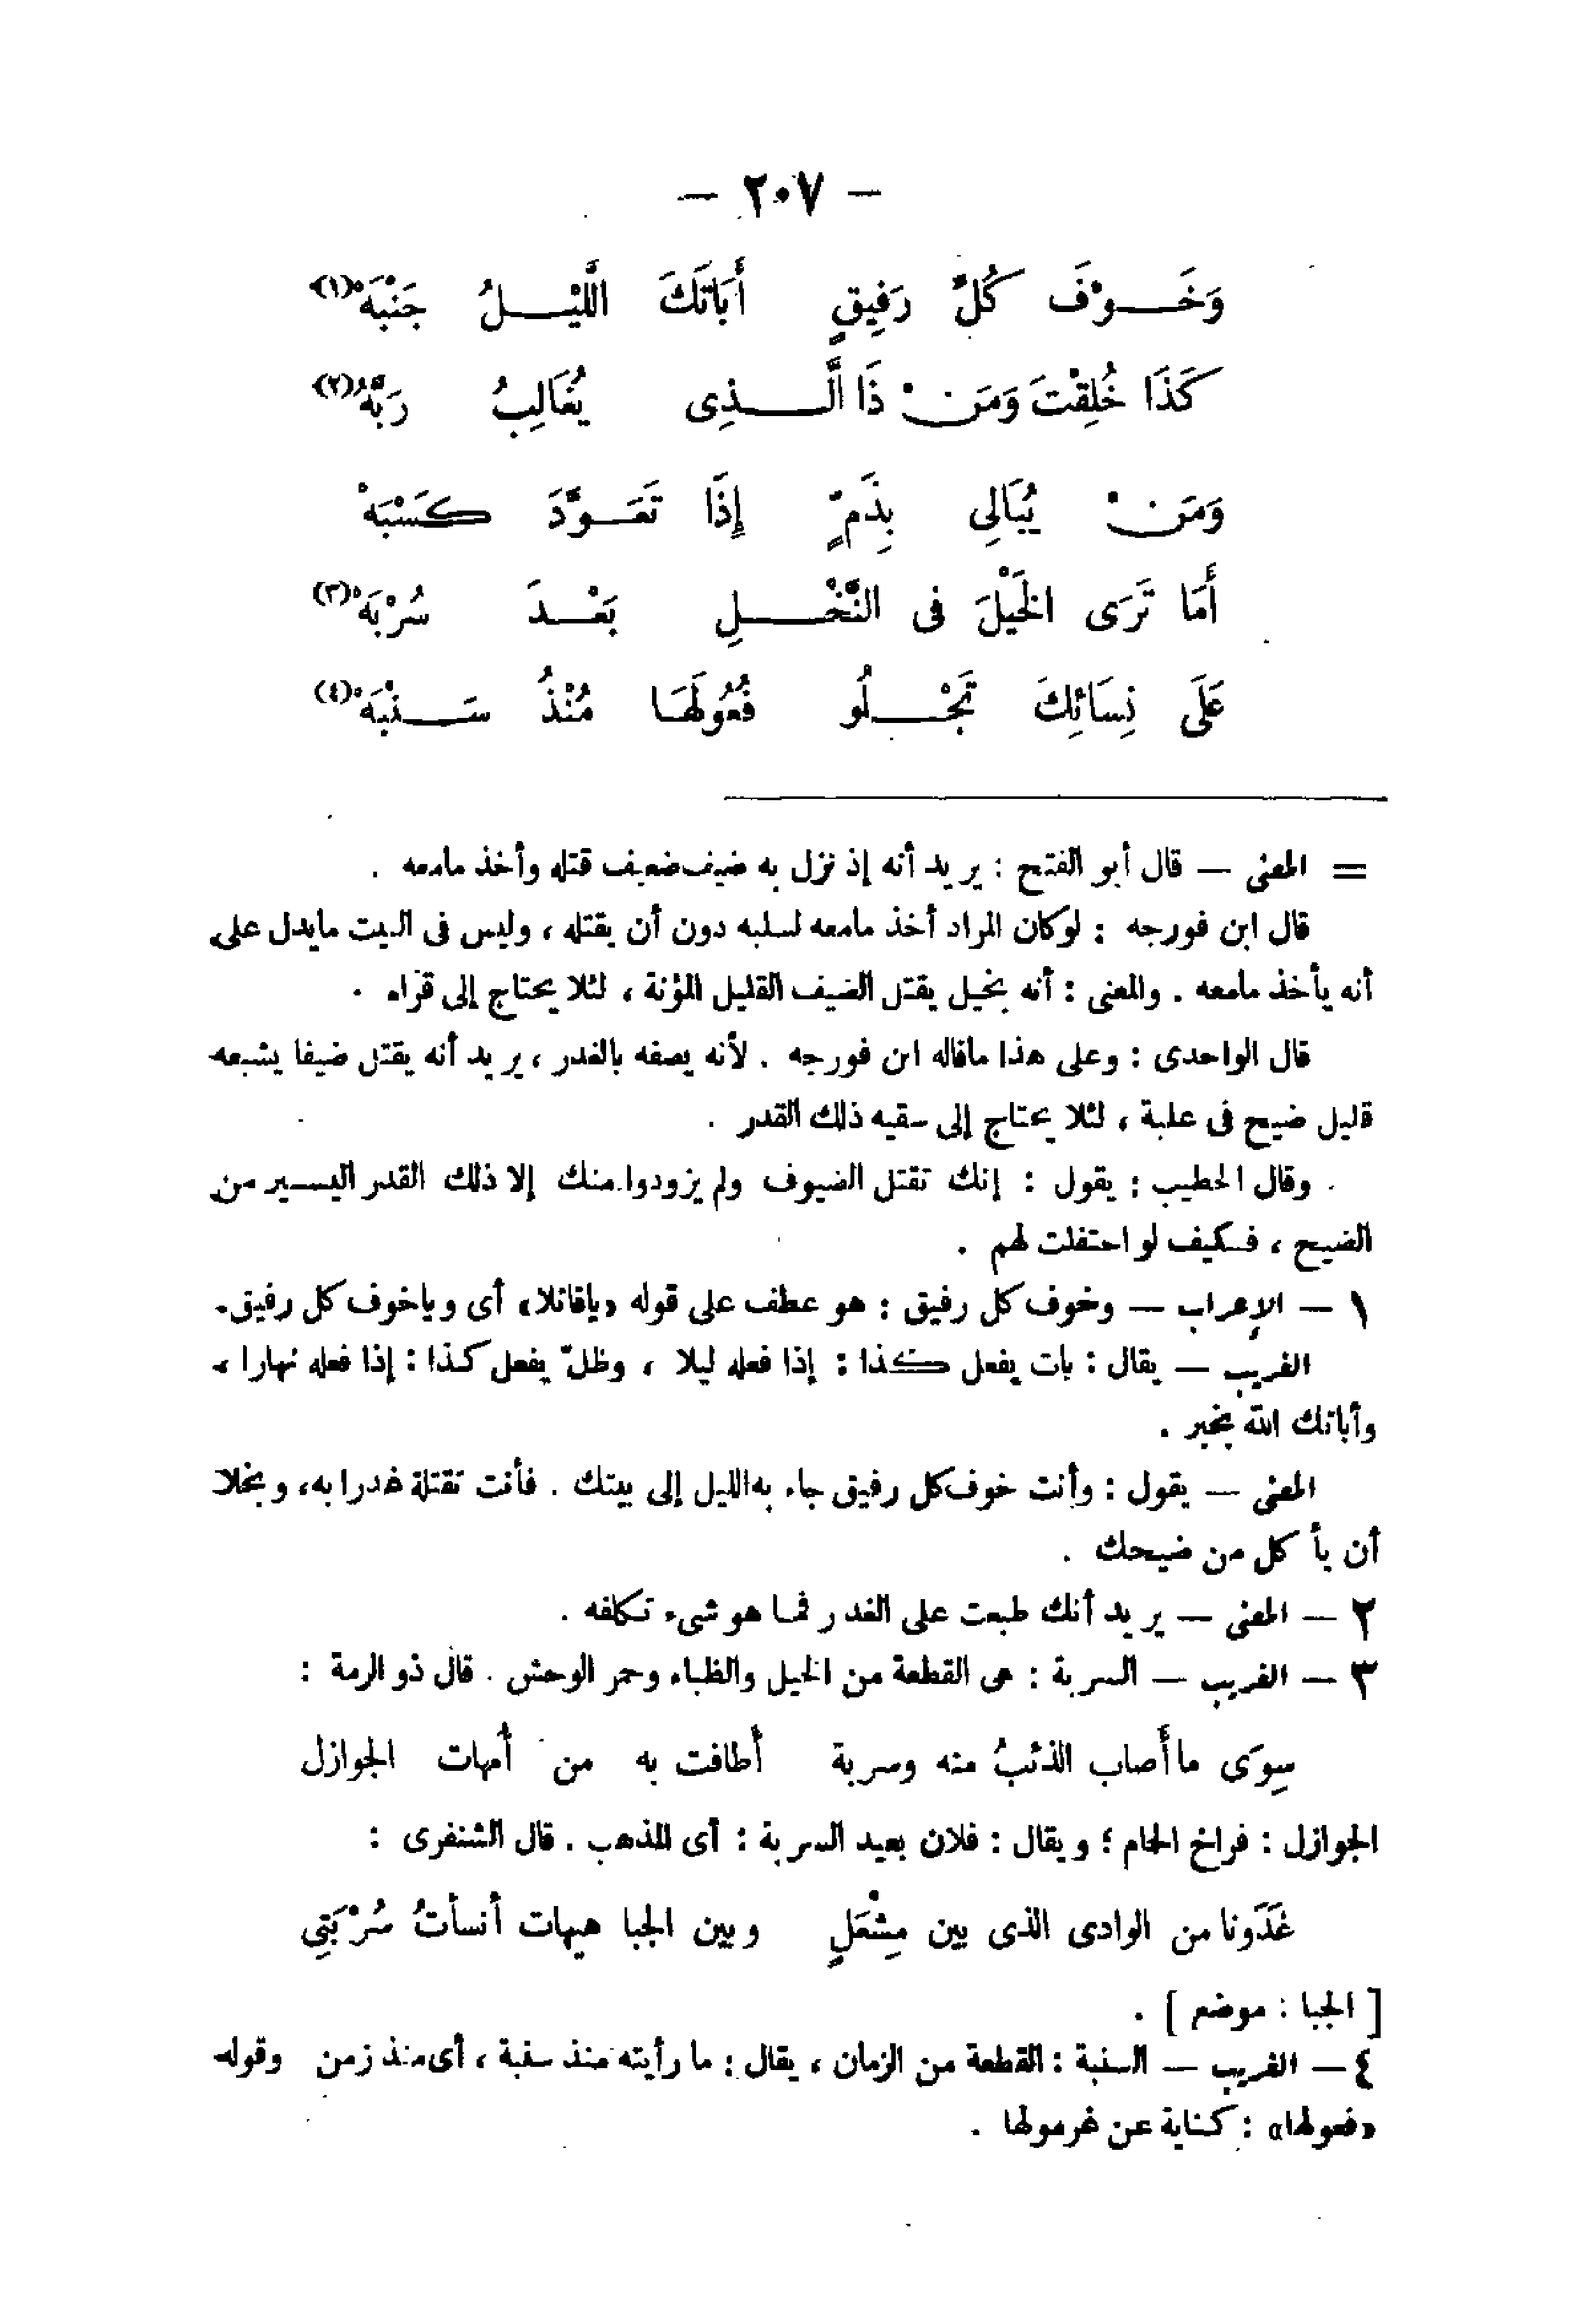 — ٢٠٧ —
وَخَوْفَ كُلِّ رَفِيقٍ أَبَاتَكَ اللَّيْلُ جَنْبَهْ (١)
كَذَا خُلِقْتَ وَمَنْ ذَا الَّذِى يُغَالِبُ رَبَّهُ (٢)
وَمَنْ يُبَالِى بِذَمٍّ إِذَا تَعَوَّدَ كَسْبَهْ
أَمَا تَرَى الخَيْلَ فى النَّخْلِ بَعْدَ سُرْبَهْ (٣)
عَلَى نِسَائِكَ تَجْلُو فُعُولَهَا مُنْذُ سَنْبَهْ (٤)
= المعنى — قال أبو الفتح : يريد أنه إذ نزل به ضيف ضعيف قتله وأخذ مامعه .
قال ابن فورجه : لوكان المراد أخذ مامعه لسلبه دون أن يقتله ، وليس فى البيت مايدل على
أنه يأخذ مامعه . والمعنى : أنه بخيل يقتل الضيف القليل المؤنة ، لئلا يحتاج إلى قراه .
قال الواحدى : وعلى هذا ماقاله ابن فورجه . لأنه يصفه بالغدر ، يريد أنه يقتل ضيفا يشبعه
قليل ضيح فى علبة ، لئلا يحتاج إلى سقيه ذلك القدر .
وقال الخطيب : يقول : إنك تقتل الضيوف ولم يزودوا منك إلا ذلك القدر اليسير من
الضيح ، فكيف لو احتفلت لهم .
١ — الإعراب — وخوف كل رفيق : هو عطف على قوله «ياقاتلا» أى وياخوف كل رفيق .
الغريب — يقال : بات يفعل كذا : إذا فعله ليلا ، وظلّ يفعل كذا : إذا فعله نهارا ،
وأباتك الله بخير .
المعنى — يقول : وأنت خوف كل رفيق جاء به الليل إلى بيتك . فأنت تقتلة غدرا به، وبخلا
أن يأكل من ضيحك .
٢ — المعنى — يريد أنك طبعت على الغدر فما هو شىء تكلفه .
٣ — الغريب — السربة : هى القطعة من الخيل والظباء وحمر الوحش . قال ذو الرمة :
سِوَى ما أَصاب الذئبُ منه وسربة أَطافت به من أُمهات الجوازل
الجوازل : فراخ الحمام ؛ ويقال : فلان بعيد السربة : أى المذهب . قال الشنفرى :
غَدَونا من الوادى الذى بين مِشْعَلٍ وبين الجبا هيهات أنسأتُ سُرْبَتِى
[ الجبا : موضع ] .
٤ — الغريب — السنبة : القطعة من الزمان ، يقال : ما رأيته منذ سنبة ، أى منذ زمن وقوله
«فعولها» : كناية عن غرمولها .